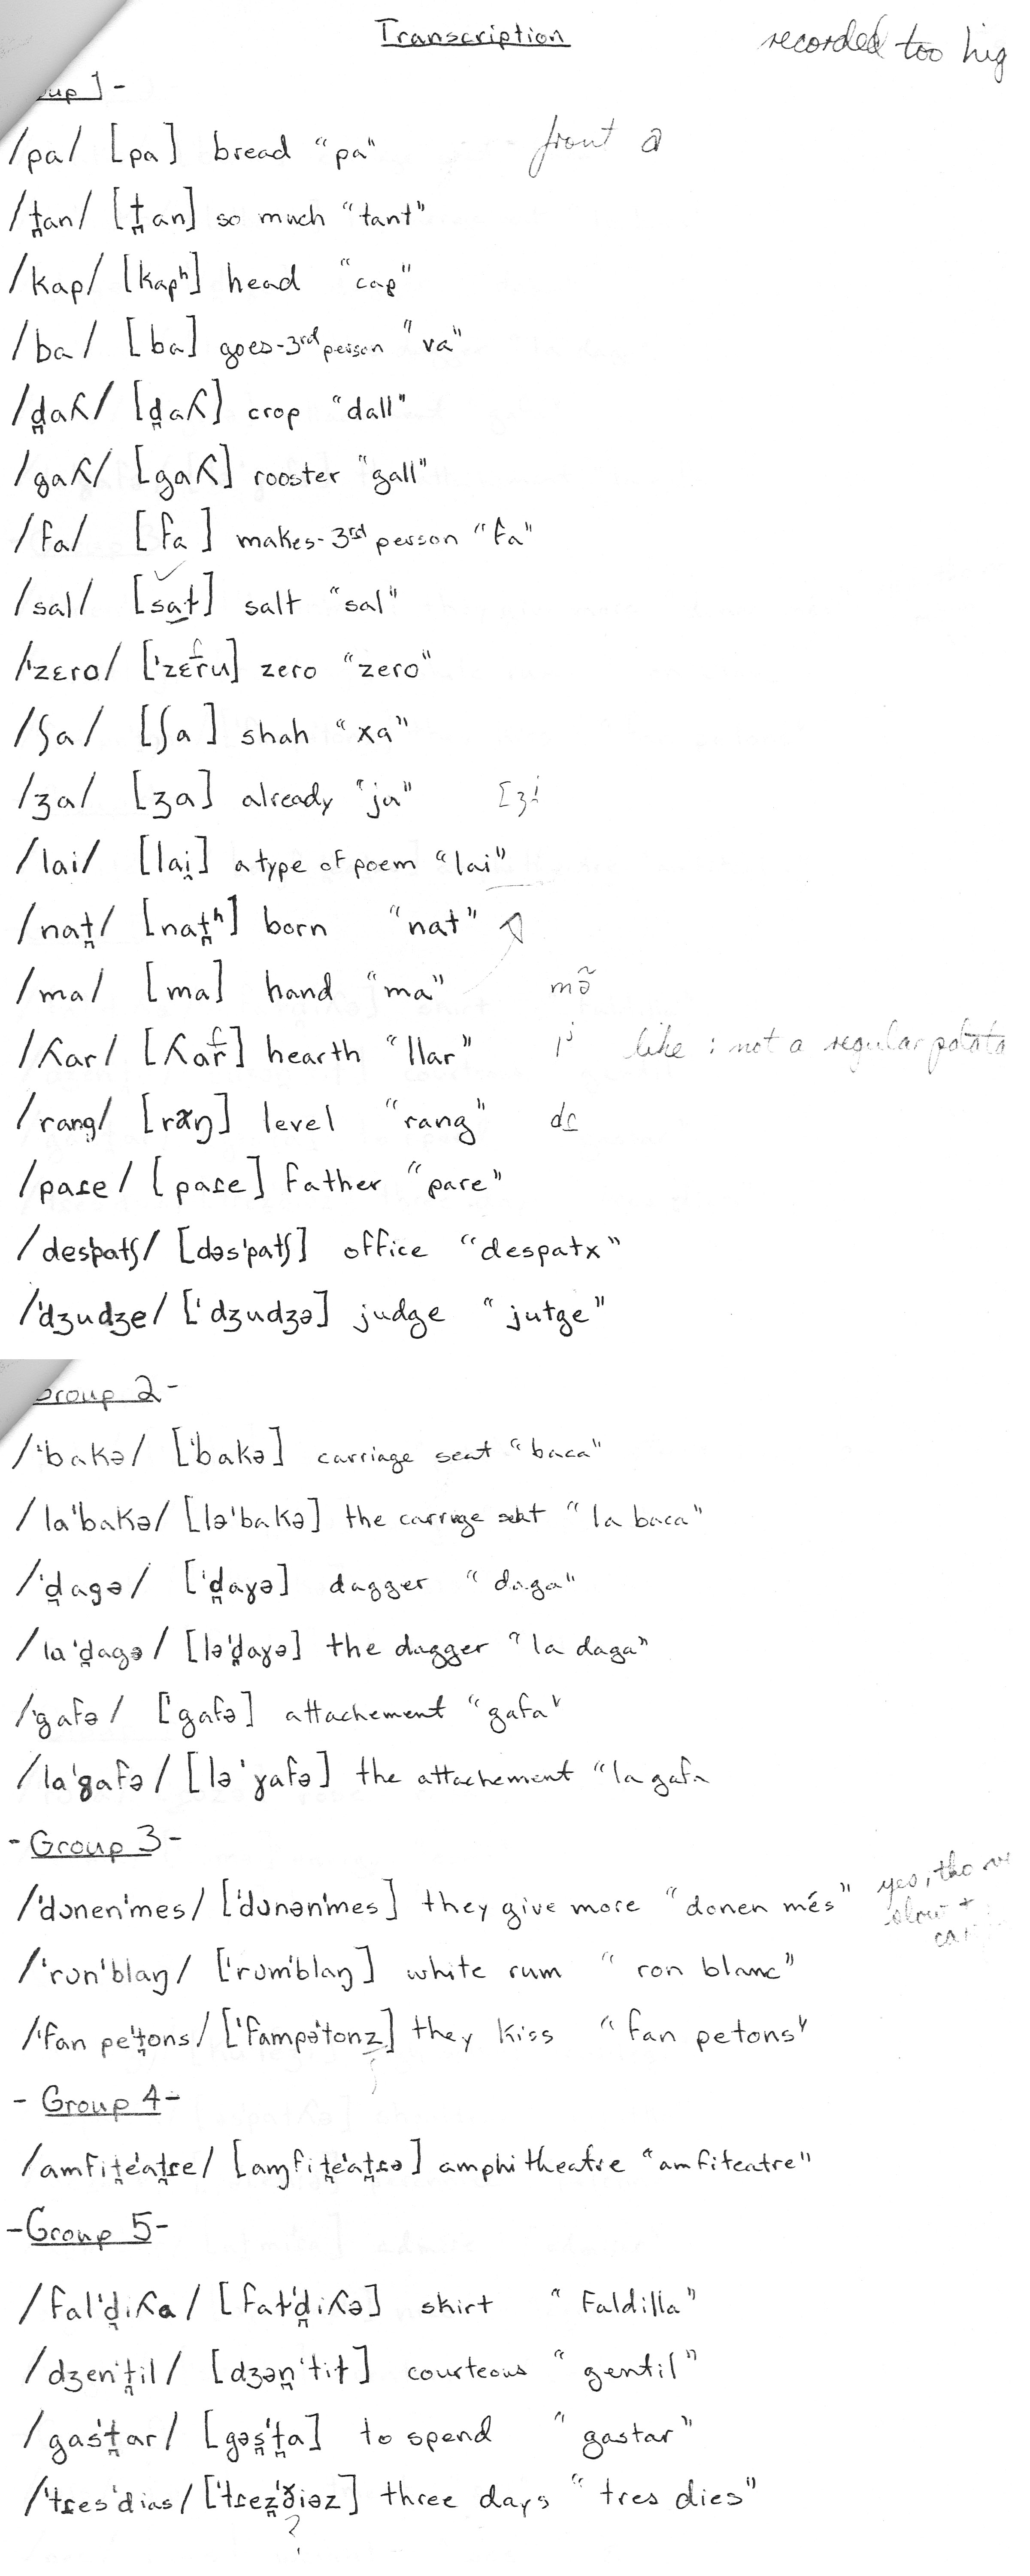 Transcription
recorded too hig
oup 1 -
/pa/ [pa] bread "pa" front a
/t̪an/ [t̪an] so much "tant"
/kap/ [kapʰ] head "cap"
/ba/ [ba] goes-3rd person "va"
/d̪aʎ/ [d̪aʎ] crop "dall"
/gaʎ/ [gaʎ] rooster "gall"
/fa/ [fa] makes-3rd person "fa"
/sal/ [saɫ] salt "sal"
/'zɛro/ ['zɛɾu] zero "zero"
/ʃa/ [ʃa] shah "xa"
/ʒa/ [ʒa] already "ja" [ʒ
/lai/ [lai̯] a type of poem "lai"
/nat̪/ [nat̪ʰ] born "nat"
/ma/ [ma] hand "ma" mã
/ʎar/ [ʎar] hearth "llar" lʲ like : not a regular potato
/rang/ [rãŋ] level "rang"
/paɾe/ [paɾe] father "pare"
/des'patʃ/ [dəs'patʃ] office "despatx"
/'dʒudʒe/ ['dʒudʒə] judge "jutge"
Group 2 -
/'bakə/ ['bakə] carriage seat "baca"
/la'bakə/ [lə'bakə] the carriage seat "la baca"
/'d̪agə/ ['d̪aɣə] dagger "daga"
/la'd̪agə/ [lə'd̪aɣə] the dagger "la daga"
/'gafə/ ['gafə] attachement "gafa"
/la'gafə/ [lə'ɣafə] the attachement "la gafa
- Group 3 -
/'dɔnen'mes/ ['dɔnən'mes] they give more "donen més" yes, tho
slow +
/'rɔn'blaŋ/ ['rɔm'blaŋ] white rum "ron blanc"
/'fan pe't̪ons/ ['fampə'tonz] they kiss "fan petons"
- Group 4 -
/amfit̪e'at̪ɾe/ [aɱfit̪e'at̪ɾə] amphitheatre "amfiteatre"
- Group 5 -
/fal'd̪iʎa/ [faɫ'd̪iʎə] skirt "Faldilla"
/dʒen't̪il/ [dʒən̪'tiɫ] courteous "gentil"
/gas't̪ar/ [gəs̪'t̪a] to spend "gastar"
/'tɾes'dias/ ['tɾez̪'ðiəz] three days "tres dies"
?